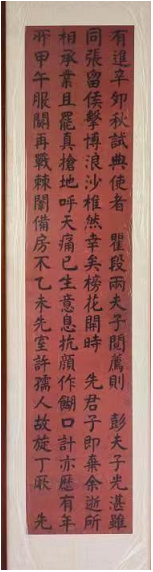 有進辛卯秋試典使者 瞿段兩夫子閱薦則 彭夫子光湛雖
同張留侯擊博浪沙椎然幸矣榜花開時 先君子即棄余逝所
相承業且罷真搶地呼天痛已生意息抗顏作餬口計亦應有年
所甲午服闋再戰棘闈備房不乙未先室許孺人故旋丁厥 先